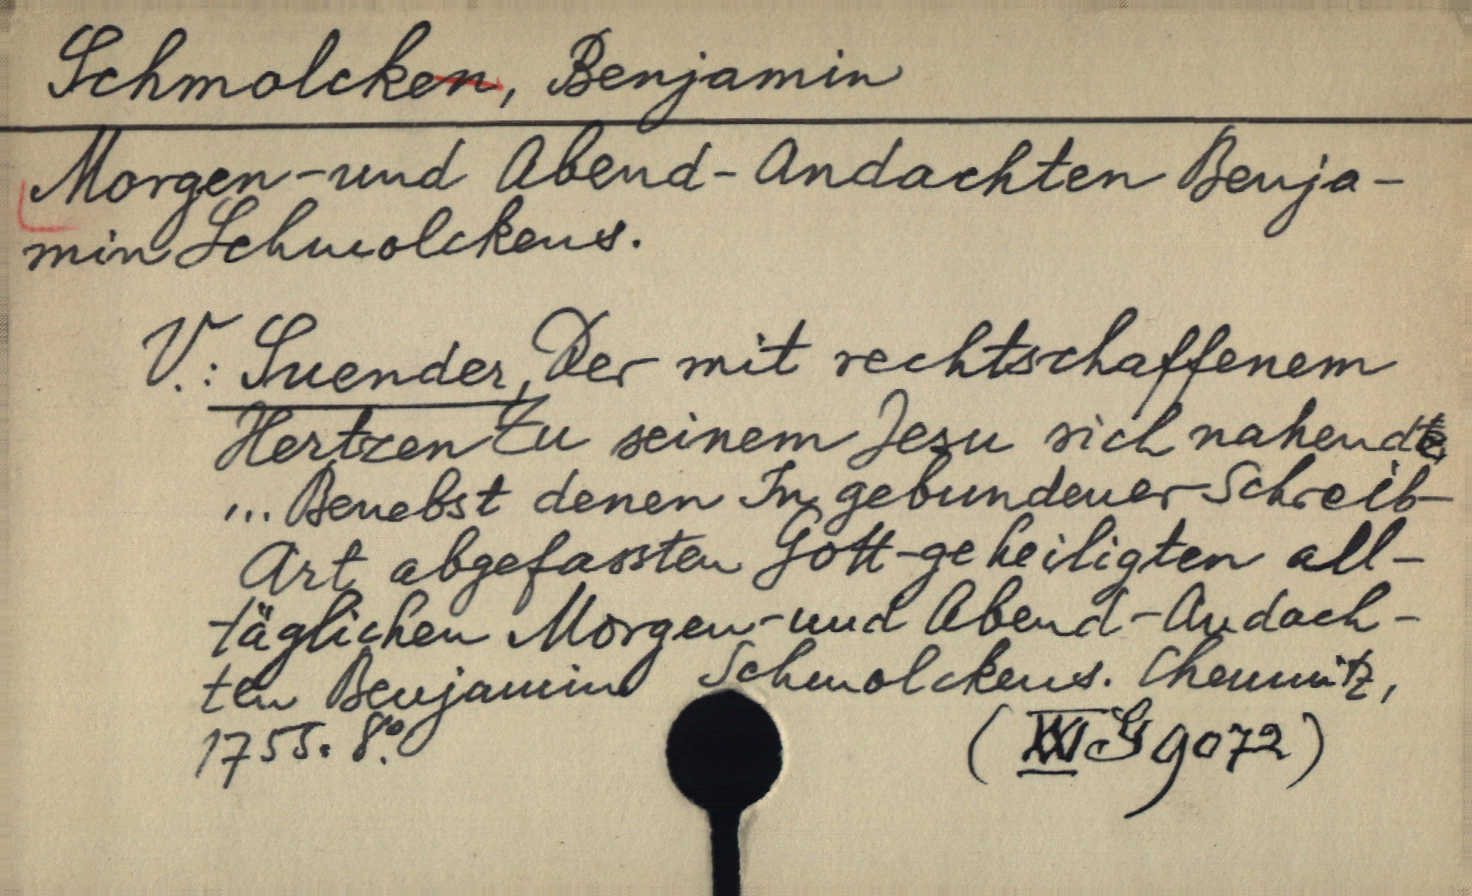 Schmolcken, Benjamin
Morgen-und Abend-Andachten Benja-
min Schmolckens.
V.: Suender, Der mit rechtschaffenem
Hertzen Zu seinem Jesu sich nahende
... Benebst denen In gebundener Schreib-
Art abgefassten Gott-geheiligten all-
täglichen Morgen-und Abend-Andach-
ten Benjamin Schmolckens. Chemnitz,
1755. 8°.
( G 9072)